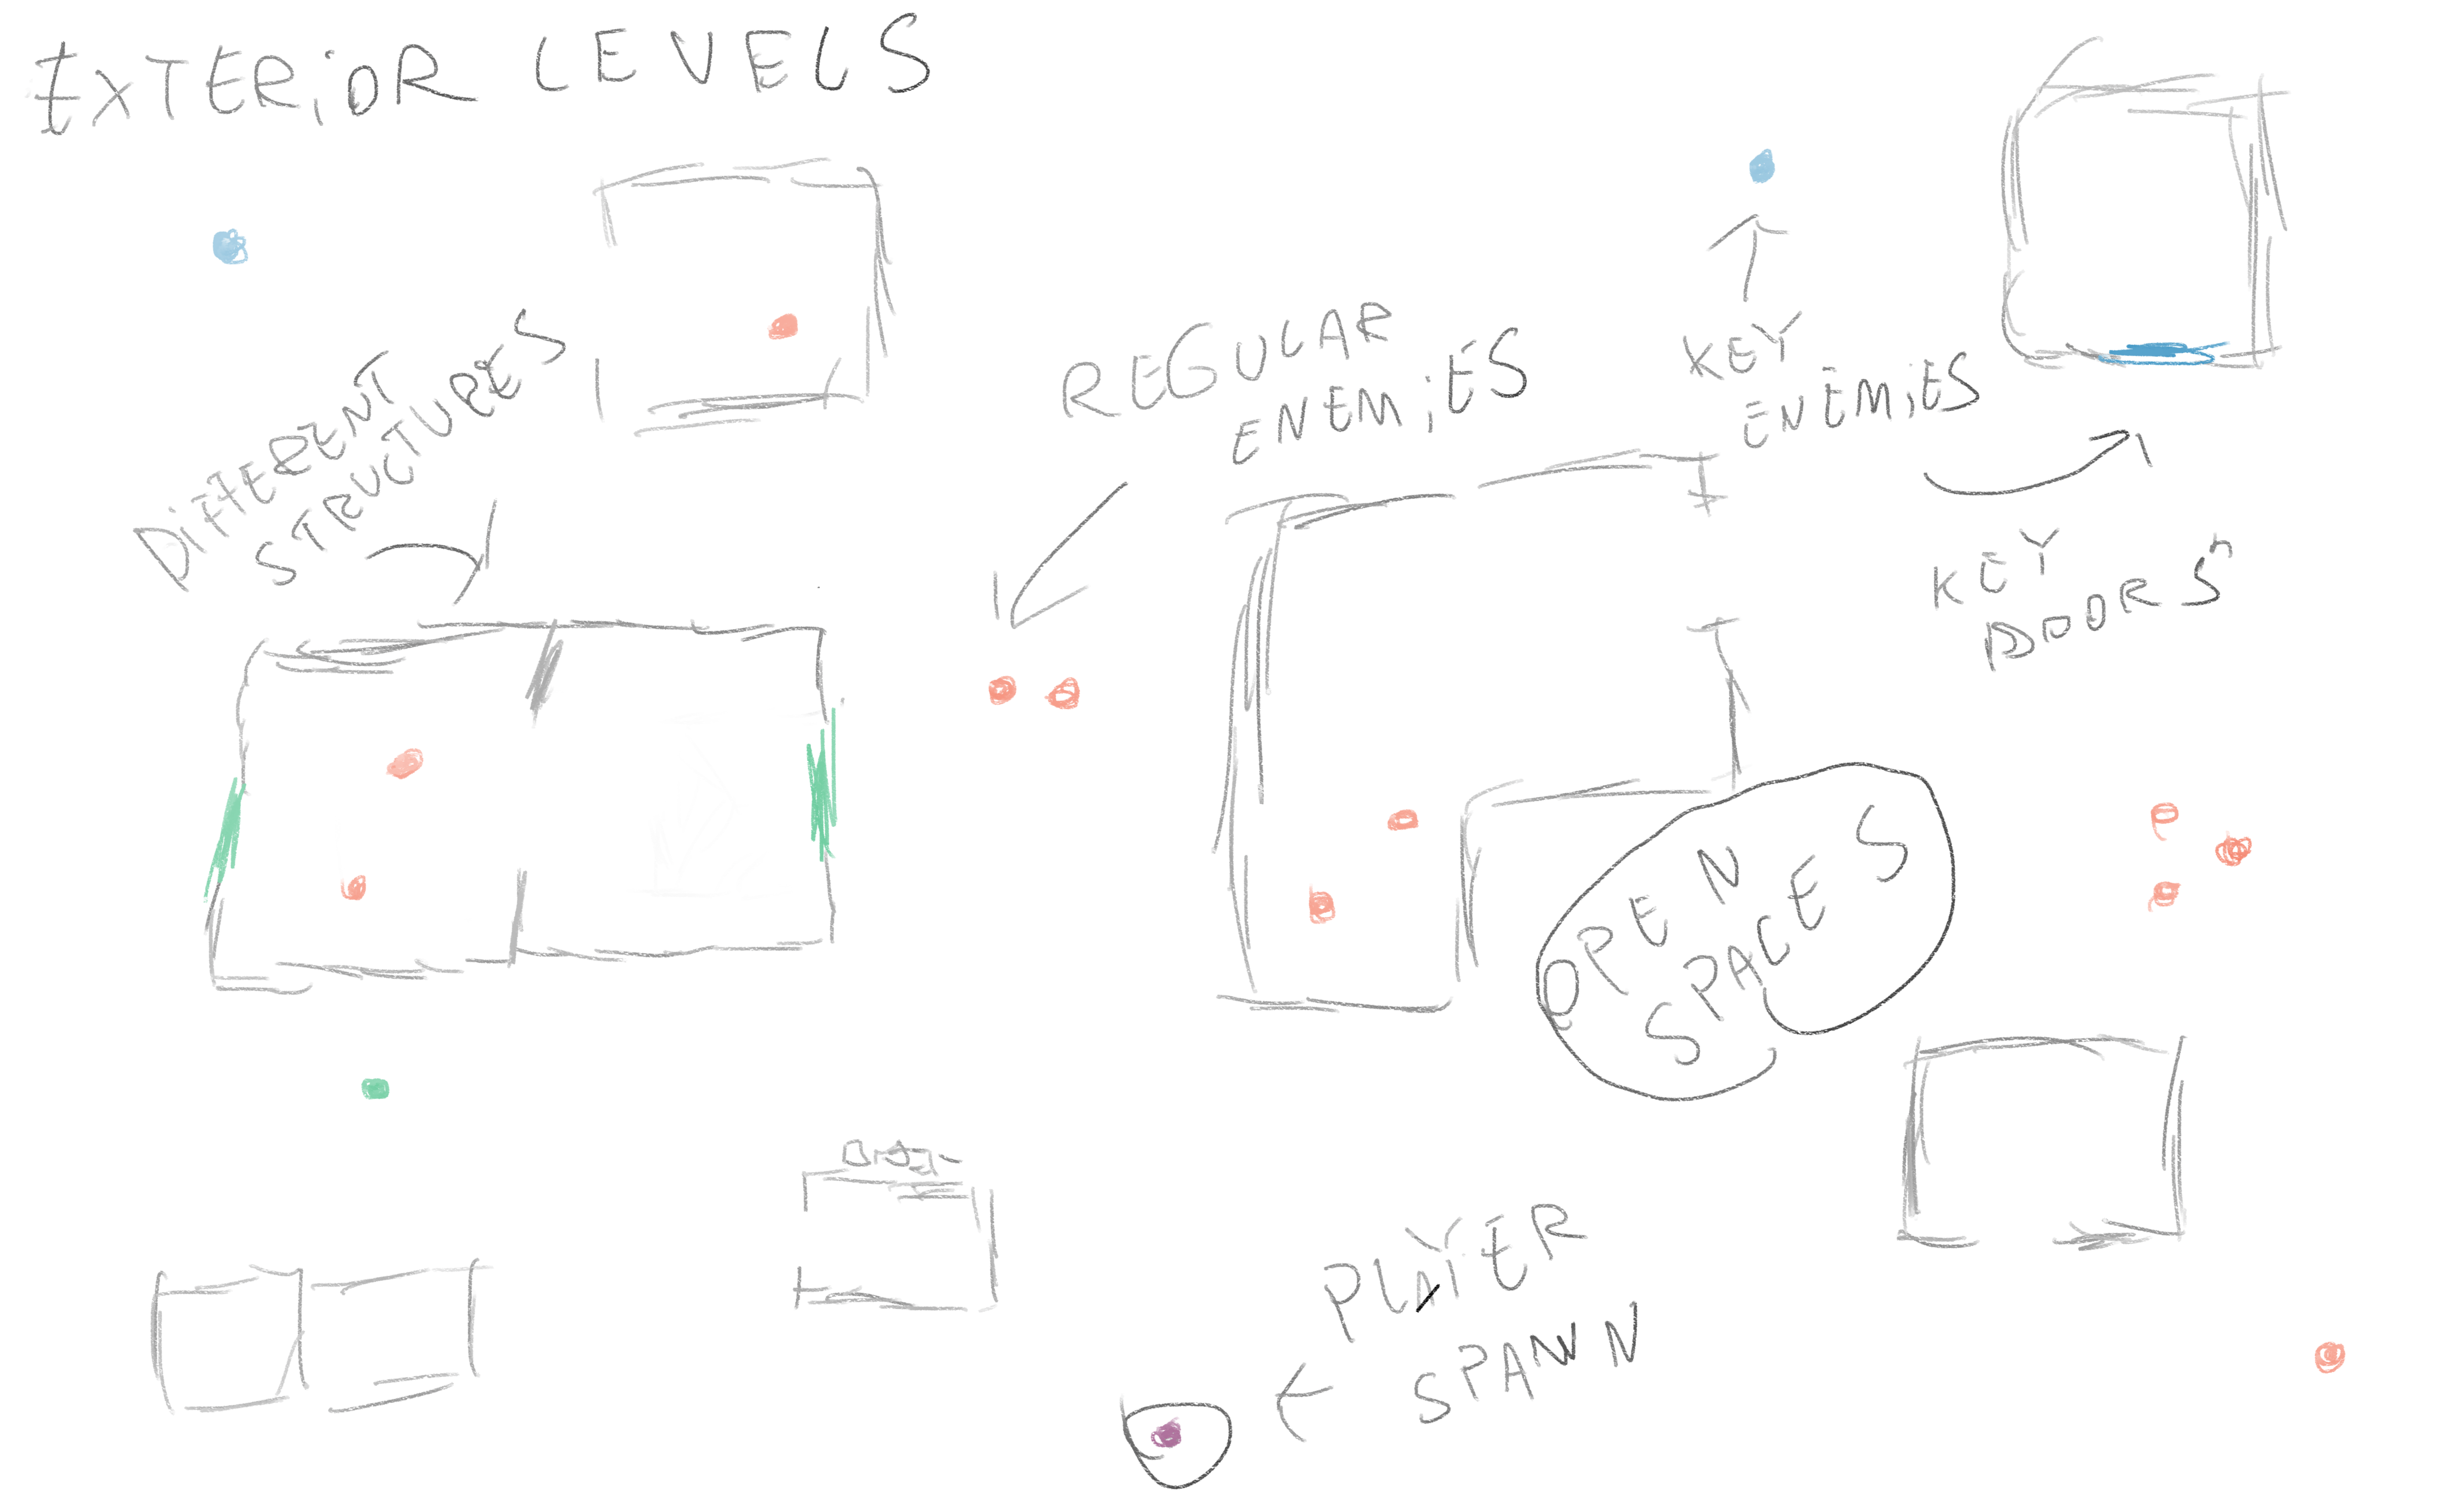 EXTERiOR LEVELS
DiFFERENT
STRUCTURES
REGULAR
ENEMiES
KEY
ENEMiES
KEY
DOORS
OPEN
SPACES
PLAYER
SPAWN